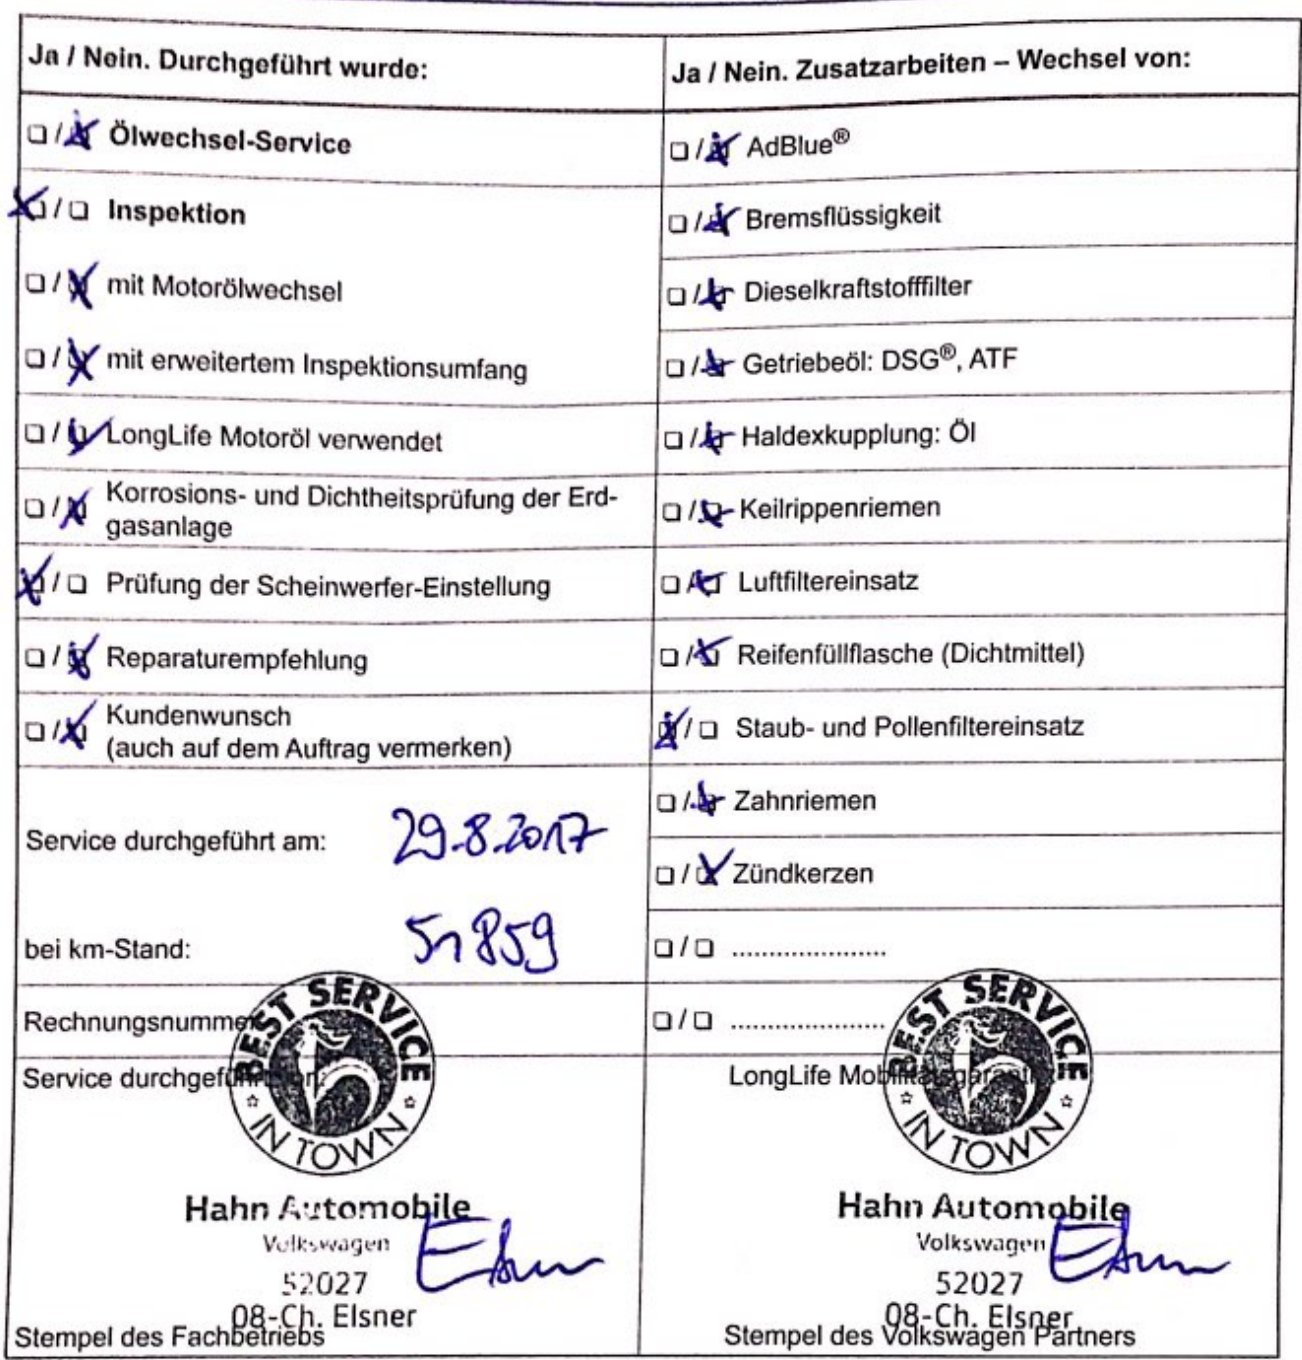 Ja / Nein. Durchgeführt wurde:
Ölwechsel-Service
Inspektion
mit Motorölwechsel
mit erweitertem Inspektionsumfang
LongLife Motoröl verwendet
Korrosions- und Dichtheitsprüfung der Erd-
gasanlage
Prüfung der Scheinwerfer-Einstellung
Reparaturempfehlung
Kundenwunsch
(auch auf dem Auftrag vermerken)
Service durchgeführt am: 29.8.2017
bei km-Stand: 51859
Rechnungsnummer
Service durchgeführt von:
BEST SERVICE
IN TOWN
Hahn Automobile
Volkswagen
52027
08-Ch. Elsner
Stempel des Fachbetriebs
Ja / Nein. Zusatzarbeiten – Wechsel von:
AdBlue®
Bremsflüssigkeit
Dieselkraftstofffilter
Getriebeöl: DSG®, ATF
Haldexkupplung: Öl
Keilrippenriemen
Luftfiltereinsatz
Reifenfüllflasche (Dichtmittel)
Staub- und Pollenfiltereinsatz
Zahnriemen
Zündkerzen
.....................
.....................
LongLife Mobilitätsgarantie
BEST SERVICE
IN TOWN
Hahn Automobile
Volkswagen
52027
08-Ch. Elsner
Stempel des Volkswagen Partners